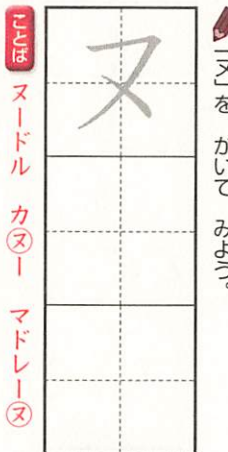 「ヌ」を かいて みよう。
ヌ
ことば
ヌードル カヌー マドレーヌ